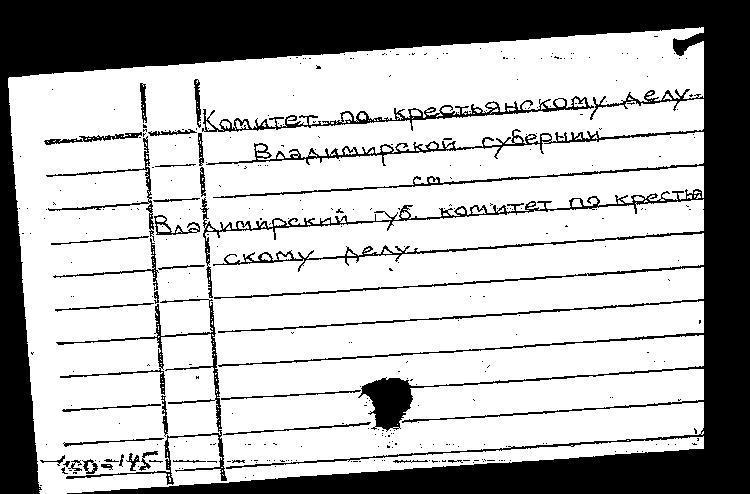 Комитет по крестьянскому делу
Владимирской губернии
см.
Владимирский губ. комитет по крестья
скому делу.